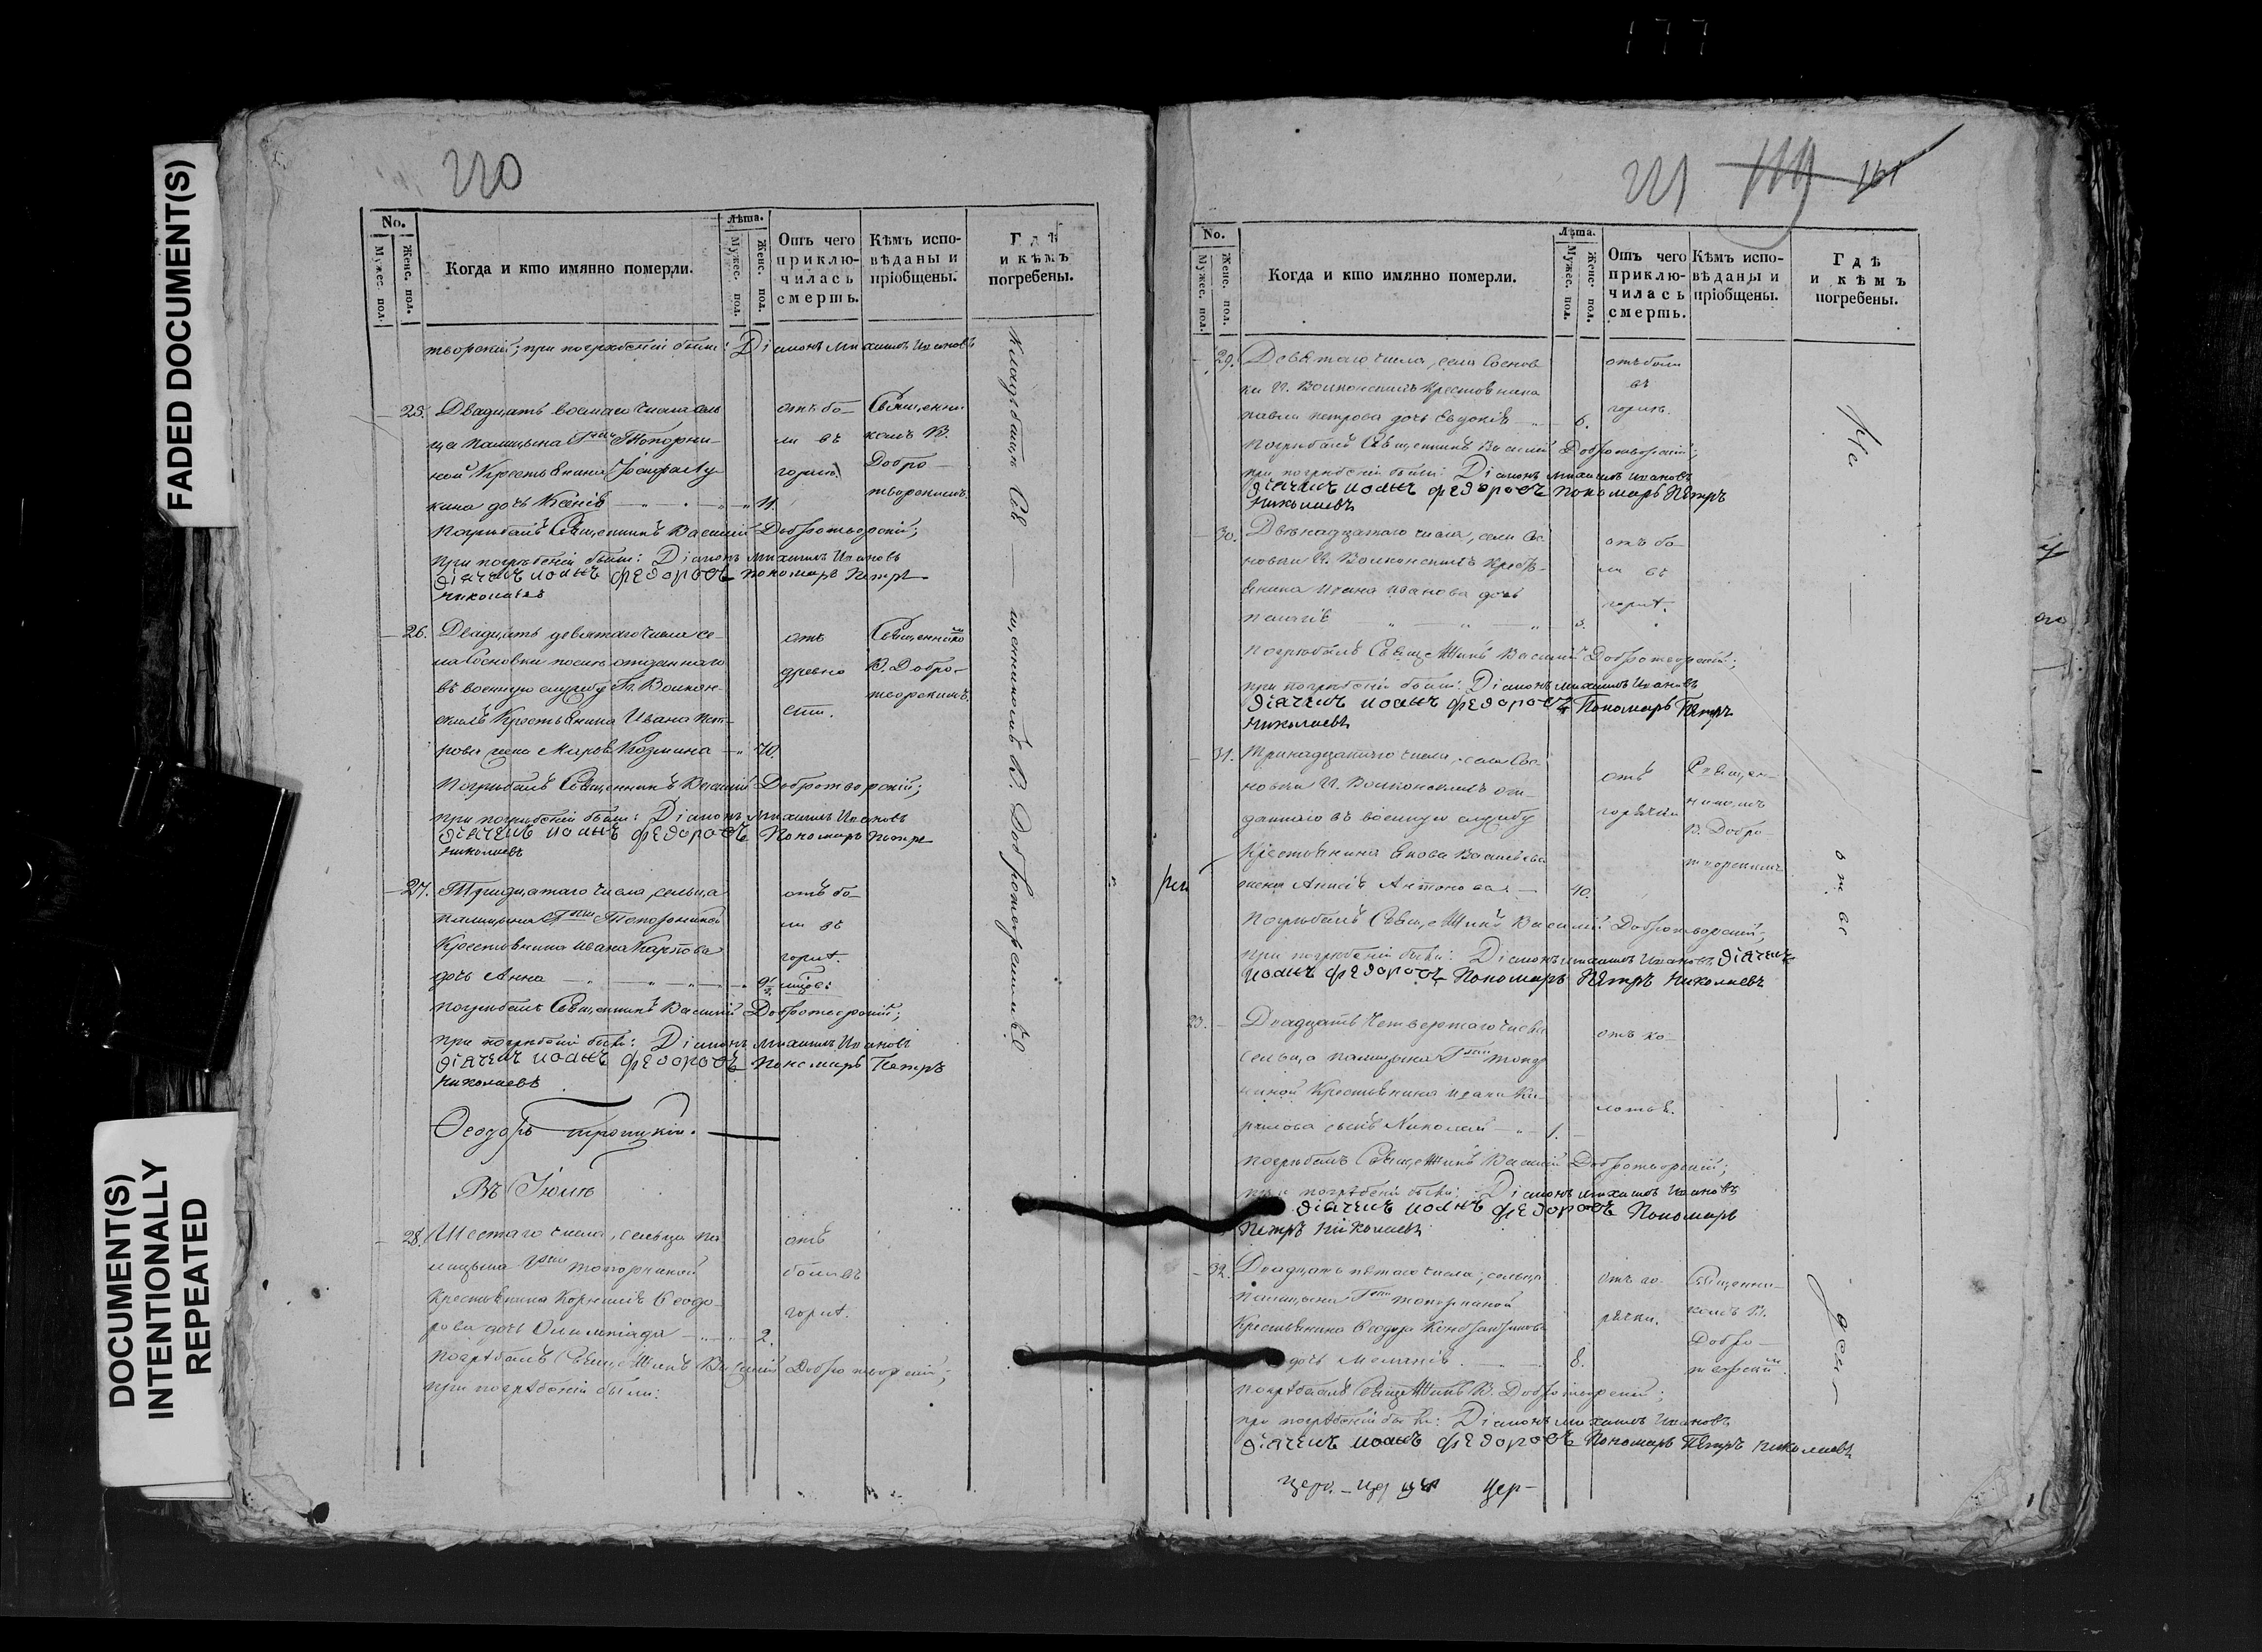 177
FADED DOCUMENT(S)
DOCUMENT(S)
INTENTIONALLY
REPEATED
220
No.
Мужес. пол.
Женс. пол.
Когда и кто имянно померли.
Лѣта.
Мужес. пол.
Женс. пол.
Отъ чего приключилась смерть.
Кѣмъ исповѣданы и пріобщены.
Гдѣ и кѣмъ погребены.
творскій; при погребеніи были: Діаконъ Михаилъ Ивановъ
25. Двадцать восмаго числа сель
ца Палицына Гжи Топорни-
ной Крестьянина Іосифа Лу-
кина дочь Ксенія 11.
отъ бо-
ли въ
горлѣ.
Священни
комъ В.
Добро-
творскимъ.
Погребалъ Священникъ Василій Добротворскій;
при погребеніи были: Діаконъ Михаилъ Ивановъ
діячекъ Иоанъ федоровъ Пономарь Петръ
Николаевъ
26. Двадцать девятаго числа се-
ла Сосновки послѣ отданнаго
въ военную службу Гг. Волкон-
скихъ Крестьянина Ивана Пет-
рова жена Марѳа Козмина 70.
отъ
древно
сти.
Священнико
В. Добро-
творскимъ.
Погребалъ Священникъ Василій Добротворскій;
при погребеніи были: Діаконъ Михаилъ Ивановъ
діячекъ Иоанъ федоровъ Пономарь Петръ
Николаевъ
27. Тридцатаго числа, сельца
Палицына Гжи Топорниной
Крестьянина Ивана Карпова
дочь Анна 9
отъ бо-
ли въ
горлѣ.
Погребалъ Священникъ Василій Добротворскій;
при погребеніи были: Діаконъ Михаилъ Ивановъ
діячекъ Иоанъ федоровъ Пономарь Петръ
Николаевъ
Ѳеодоръ Троицкій.
Въ Іюлѣ
28. Шестаго числа, сельца Па
лицына Гжи Топорниной
Крестьянина Корнилія Ѳеодо-
рова дочь Олимпіада 2.
отъ
боли въ
горлѣ.
Погребалъ Священникъ Василій Добротворскій;
при погребеніи были:
Кладбищѣ Свя-
щенникомъ В. Добротворскимъ
221
161
No.
Мужес. пол.
Женс. пол.
Когда и кто имянно померли.
Лѣта.
Мужес. пол.
Женс. пол.
Отъ чего приключилась смерть.
Кѣмъ исповѣданы и пріобщены.
Гдѣ и кѣмъ погребены.
29. Девятаго числа, села Соснов
ки Гг. Волконскихъ Крестьянина
Павла Петрова дочь Евдокія 6.
отъ боли
въ
горлѣ.
Погребалъ Священникъ Василій Добротворскій;
при погребеніи были: Діаконъ Михаилъ Ивановъ
діячекъ Иоанъ федоровъ Пономарь Петръ
Николаевъ
30. Двѣнадцатаго числа, села Сос
новки Гг. Волконскихъ Крестья-
нина Ивана Иванова дочь
отъ бо-
ли въ
горлѣ.
Погребалъ Священникъ Василій Добротворскій;
при погребеніи были: Діаконъ Михаилъ Ивановъ
діячекъ Иоанъ федоровъ Пономарь Петръ
Николаевъ
31. Тринадцатаго числа, села Сос
новки Гг. Волконскихъ от-
даннаго въ военную службу
Крестьянина Якова Васильева
жена Анисія Антонова 40.
отъ
горячки
Священ-
никомъ
В. Добро-
творскимъ
Погребалъ Священникъ Василій Добротворскій;
при погребеніи были: Діаконъ Михаилъ Ивановъ діячекъ
Иоанъ федоровъ Пономарь Петръ Николаевъ
23. Двадцать четвертаго числа
сельца Палицына Гжи Топор
ниной Крестьянина Ивана Ки-
рилова сынъ Николай 1.
отъ ко-
лотья.
Погребалъ Священникъ Василій Добротворскій;
при погребеніи были: Діаконъ Михаилъ Ивановъ
діячекъ Иоанъ федоровъ Пономарь
Петръ Николаевъ
32. Двадцать пятаго числа, сельца
Палицына Гжи Топорниной
Крестьянина Ѳеодора Константинова
дочь Меланія 8.
отъ го-
рячки.
Священни-
комъ В.
Добро-
творскимъ
Погребалъ Священникъ В. Добротворскій;
при погребеніи были: Діаконъ Михаилъ Ивановъ
діячекъ Иоанъ федоровъ Пономарь Петръ Николаевъ
На